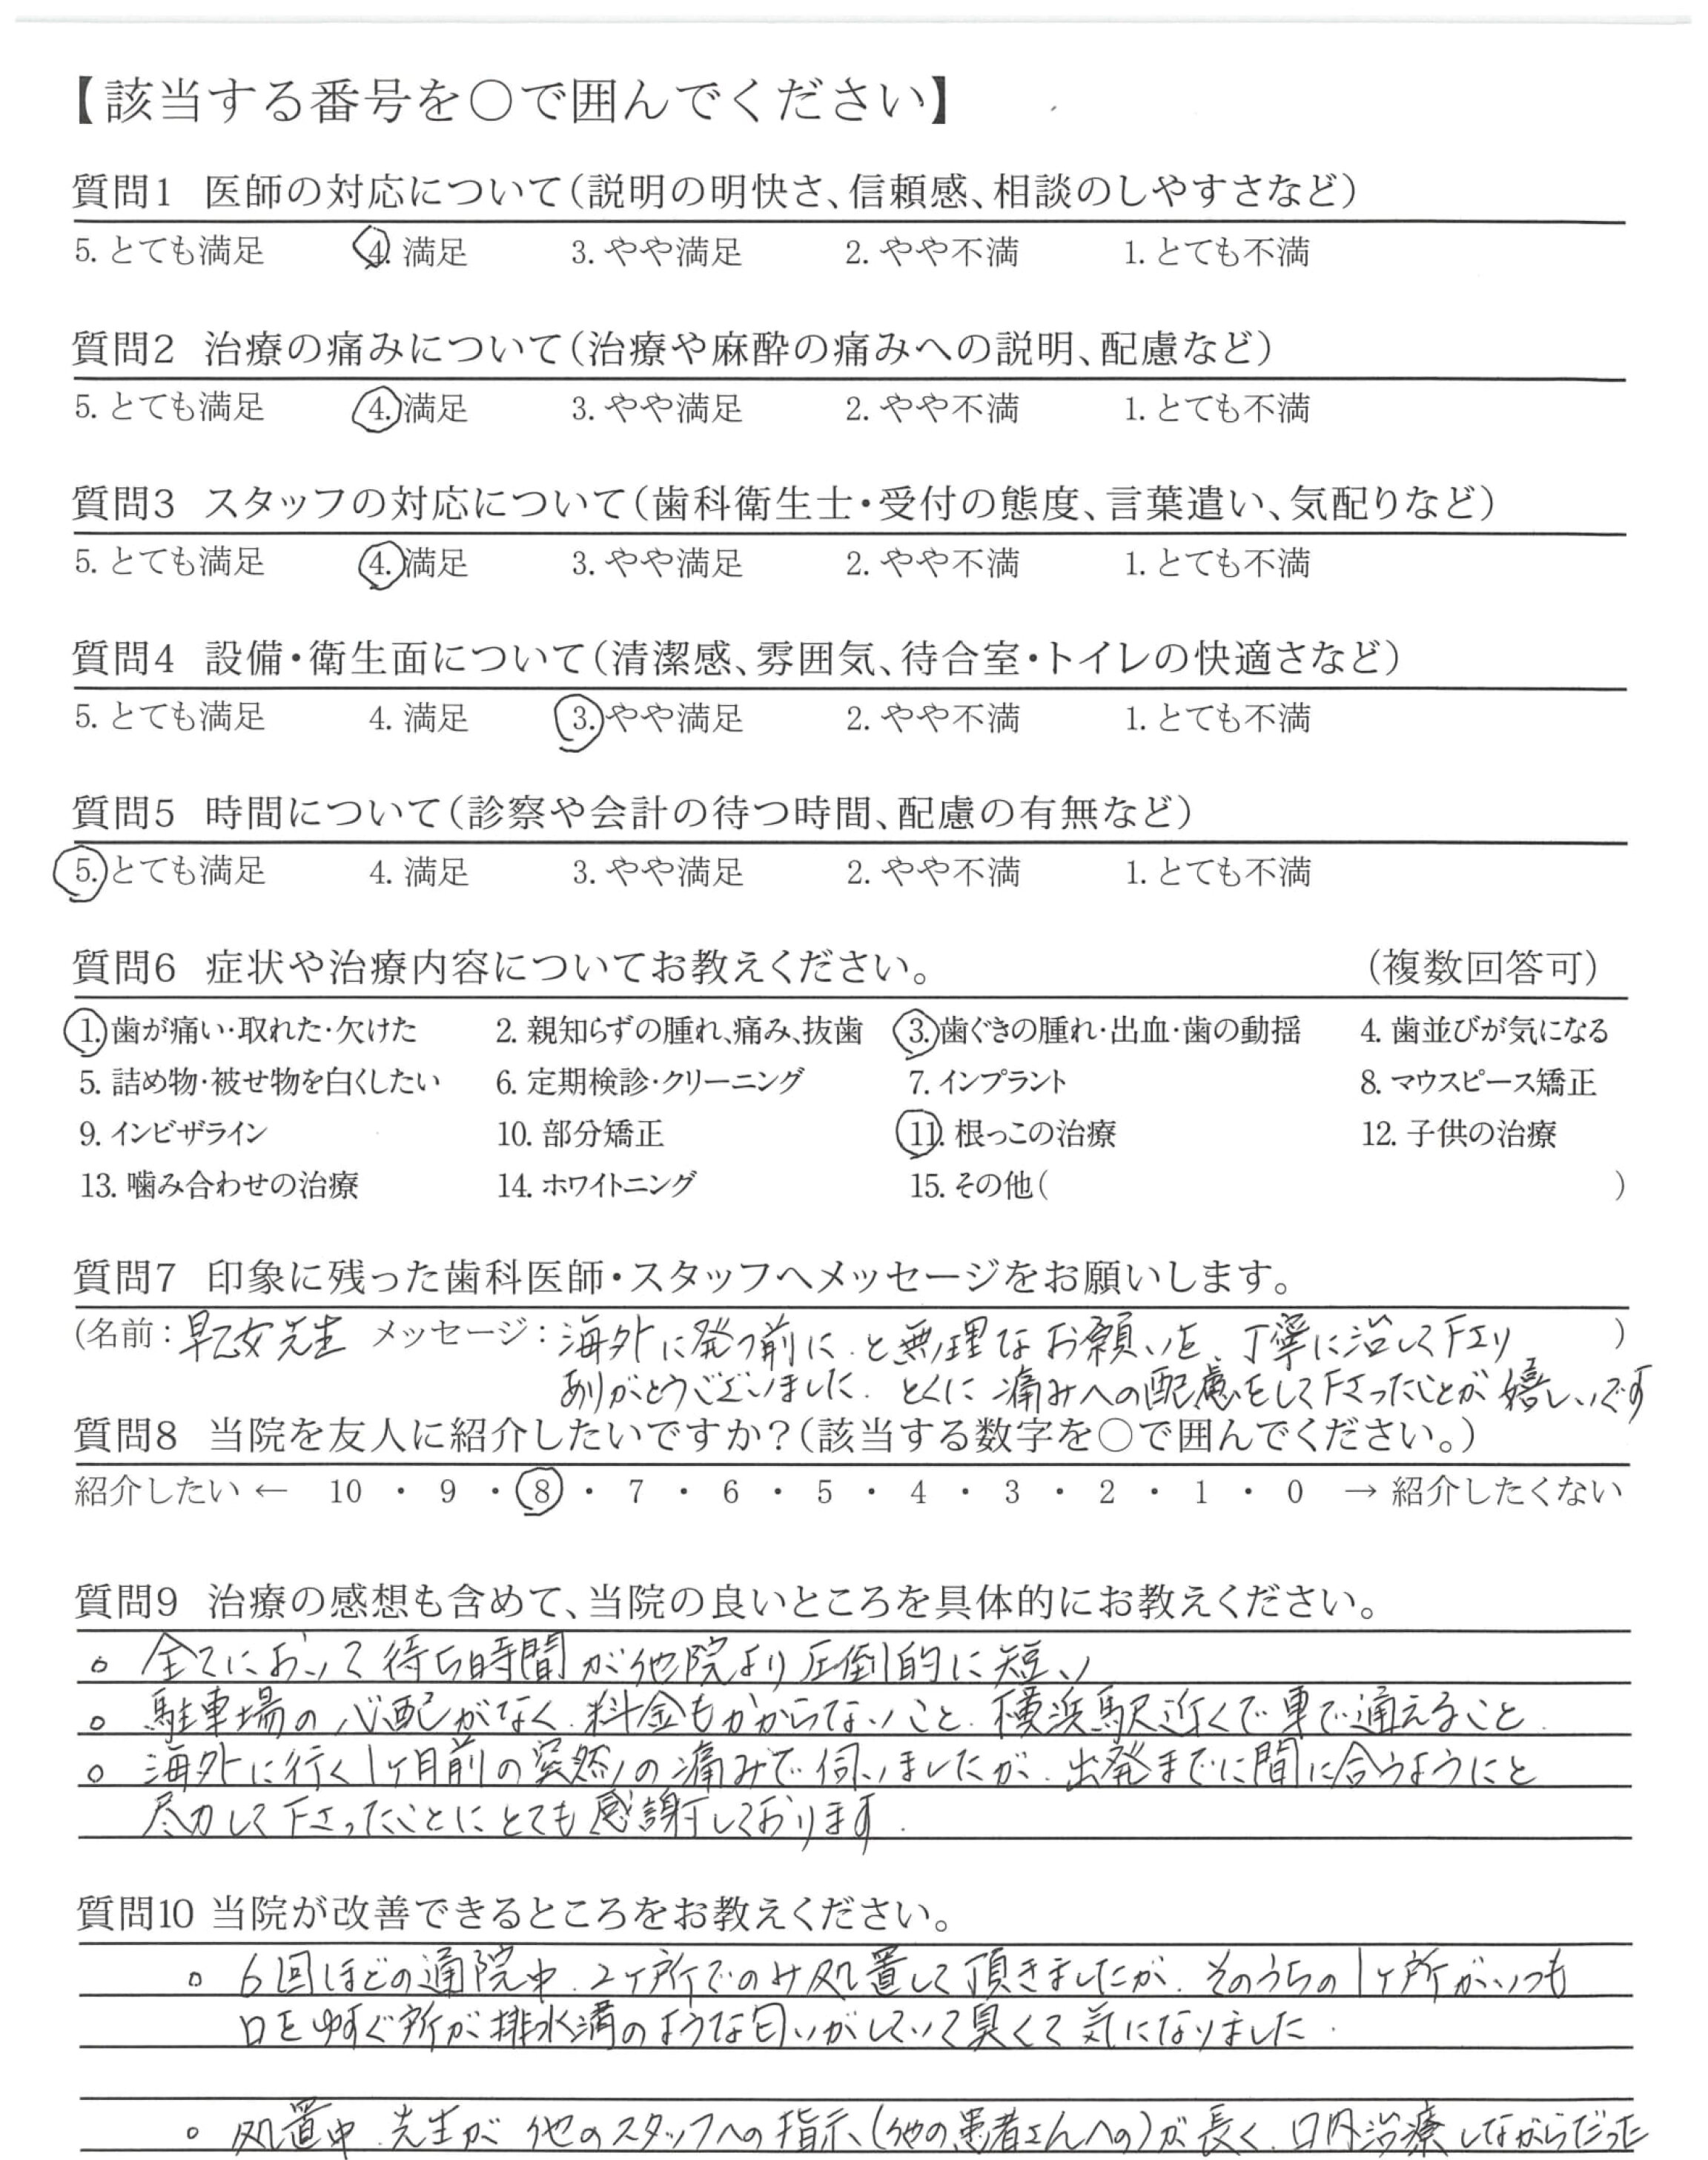 【該当する番号を○で囲んでください】
質問1 医師の対応について(説明の明快さ、信頼感、相談のしやすさなど)
5. とても満足 4. 満足 3. やや満足 2. やや不満 1. とても不満
質問2 治療の痛みについて(治療や麻酔の痛みへの説明、配慮など)
5. とても満足 4. 満足 3. やや満足 2. やや不満 1. とても不満
質問3 スタッフの対応について(歯科衛生士・受付の態度、言葉遣い、気配りなど)
5. とても満足 4. 満足 3. やや満足 2. やや不満 1. とても不満
質問4 設備・衛生面について(清潔感、雰囲気、待合室・トイレの快適さなど)
5. とても満足 4. 満足 3. やや満足 2. やや不満 1. とても不満
質問5 時間について(診察や会計の待つ時間、配慮の有無など)
5. とても満足 4. 満足 3. やや満足 2. やや不満 1. とても不満
質問6 症状や治療内容についてお教えください。 (複数回答可)
1. 歯が痛い・取れた・欠けた 2. 親知らずの腫れ、痛み、抜歯 3. 歯ぐきの腫れ・出血・歯の動揺 4. 歯並びが気になる
5. 詰め物・被せ物を白くしたい 6. 定期検診・クリーニング 7. インプラント 8. マウスピース矯正
9. インビザライン 10. 部分矯正 11. 根っこの治療 12. 子供の治療
13. 噛み合わせの治療 14. ホワイトニング 15. その他( )
質問7 印象に残った歯科医師・スタッフへメッセージをお願いします。
(名前：早乙女先生 メッセージ：海外に発つ前に、と無理なお願いを、丁寧に治して下さり )
ありがとうございました. とくに痛みへの配慮をして下さったことが嬉しいです
質問8 当院を友人に紹介したいですか？(該当する数字を○で囲んでください。)
紹介したい ← 10 ・ 9 ・ 8 ・ 7 ・ 6 ・ 5 ・ 4 ・ 3 ・ 2 ・ 1 ・ 0 → 紹介したくない
質問9 治療の感想も含めて、当院の良いところを具体的にお教えください。
○ 全てにおいて待ち時間が他院より圧倒的に短い
○ 駐車場の心配がなく、料金もかからないこと、横浜駅近くで車で通えること.
○ 海外に行く1ヶ月前の突然の痛みで伺いましたが、出発までに間に合うようにと
尽力して下さったことにとても感謝しております.
質問10 当院が改善できるところをお教えください。
○ 6回ほどの通院中、2ヶ所でのみ処置して頂きましたが、そのうちの1ヶ所がいつも
口をゆすぐ所が排水溝のような匂いがしていて臭くて気になりました.
○ 処置中、先生が他のスタッフへの指示(他の患者さんへの)が長く、口内治療しながらだった